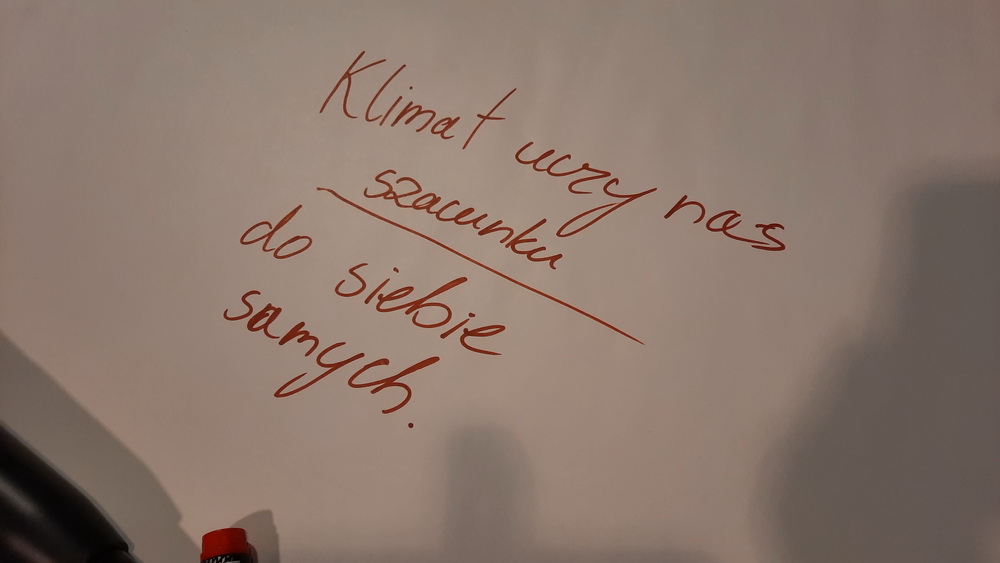 Klimat uczy nas
szacunku
do siebie
samych.